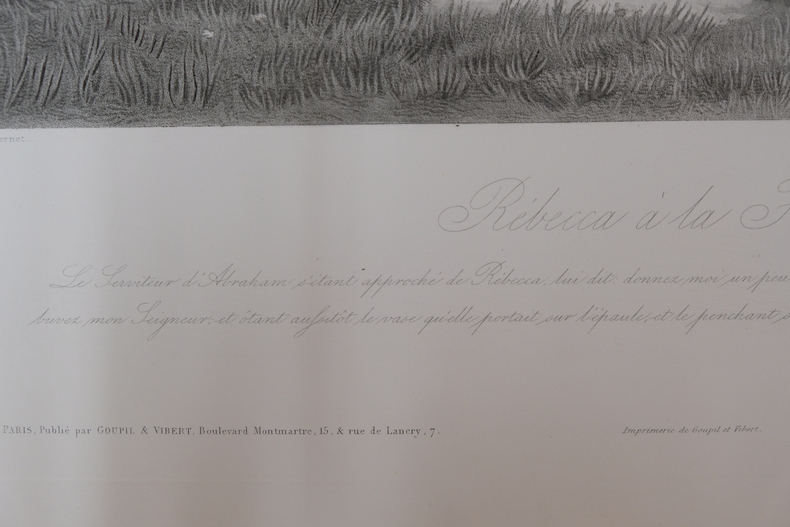 ernet.
Rébecca à la F
Le Serviteur d'Abraham s'étant approché de Rébecca, lui dit: donnez moi un peu
buvez mon Seigneur; et ôtant aussitôt le vase qu'elle portait sur l'épaule, et le penchant s
PARIS, Publié par GOUPIL & VIBERT, Boulevard Montmartre, 15, & rue de Lancry, 7.
Imprimerie de Goupil et Vibert.